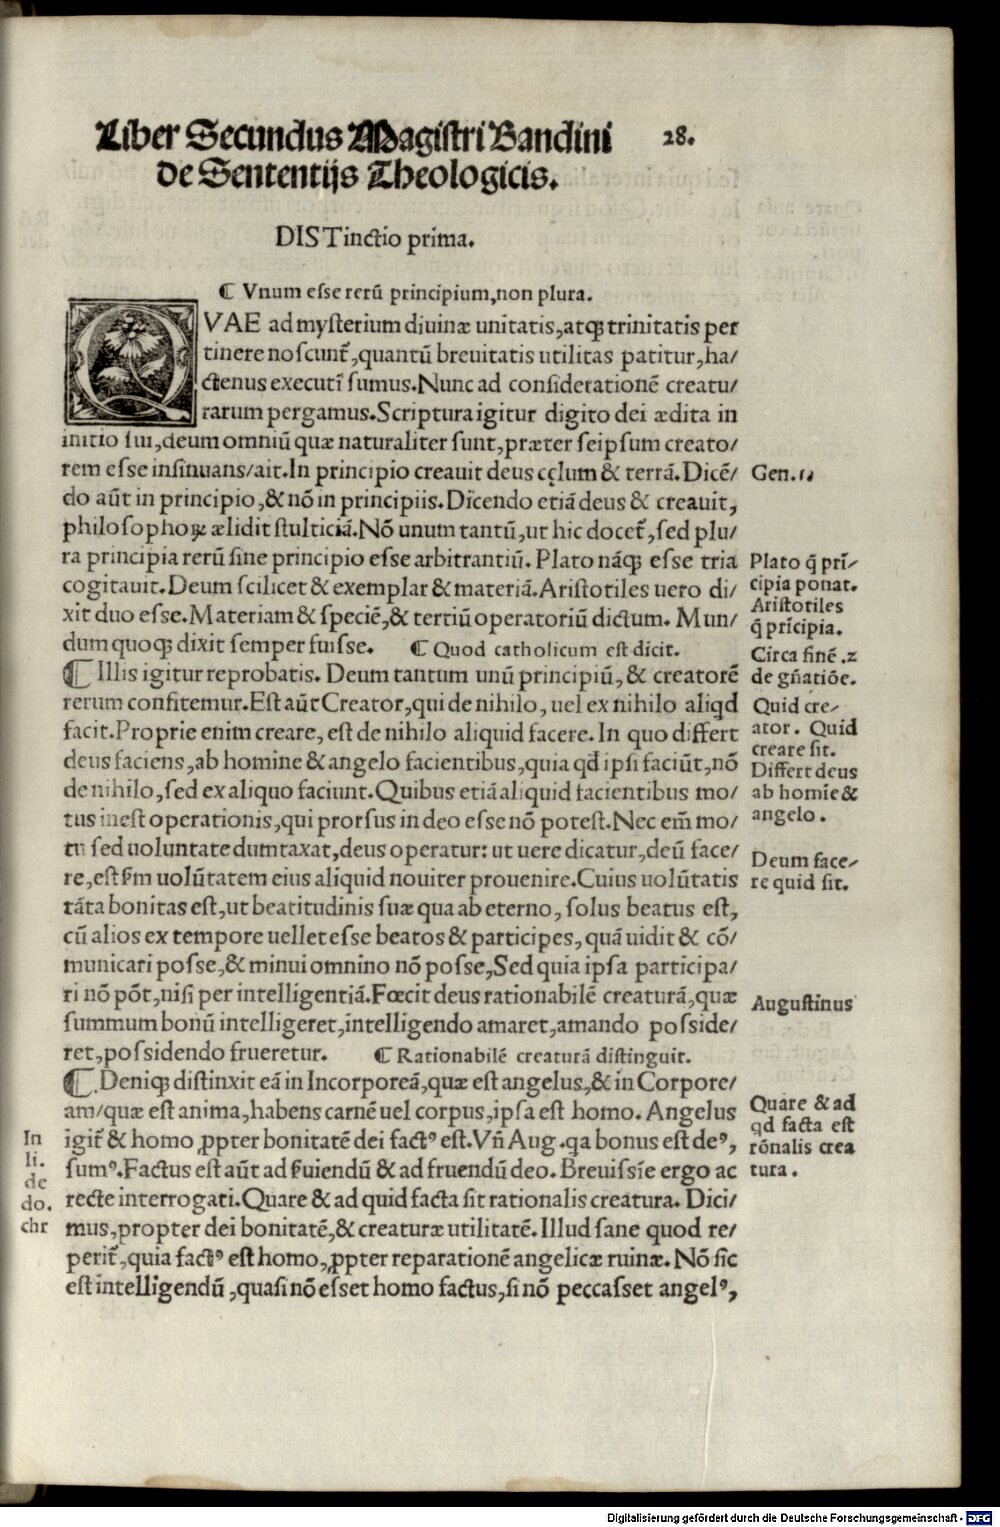 Liber Secundus Magistri Bandini
28.
de Sententijs Theologicis.
DISTinctio prima.
¶ Vnum esse rerū principium,non plura.
QVAE ad mysterium diuinæ unitatis,atqꝫ trinitatis per
tinere noscunt᷑,quantū breuitatis utilitas patitur,ha/
ctenus executi sumus.Nunc ad considerationē creatu/
rarum pergamus.Scriptura igitur digito dei ædita in
initio sui,deum omniū quæ naturaliter sunt,præter seipsum creato/
rem esse insinuans/ait.In principio creauit deus cęlum & terrā.Dicē/
do aūt in principio,& nō in principiis.Dicendo etiā deus & creauit,
philosophoꝝ ælidit stulticiā.Nō unum tantū,ut hic docet᷑,sed plu/
ra principia rerū sine principio esse arbitrantiū.Plato nāqꝫ esse tria
cogitauit.Deum scilicet & exemplar & materiā.Aristotiles uero di/
xit duo esse.Materiam & speciē,& tertiū operatoriū dictum. Mun/
dum quoqꝫ dixit semper fuisse. ¶ Quod catholicum est dicit.
¶ Illis igitur reprobatis. Deum tantum unū principiū,& creatorē
rerum confitemur.Est aūt Creator,qui de nihilo, uel ex nihilo aliqd
facit.Proprie enim creare, est de nihilo aliquid facere. In quo differt
deus faciens,ab homine & angelo facientibus,quia qđ ipsi faciūt,nō
de nihilo,sed ex aliquo faciunt.Quibus etiā aliquid facientibus mo/
tus inest operationis,qui prorsus in deo esse nō potest.Nec em̄ mo/
tu sed uoluntate dumtaxat,deus operatur: ut uere dicatur,deū face/
re,est sm̄ uolūtatem eius aliquid nouiter prouenire.Cuius uolūtatis
tāta bonitas est,ut beatitudinis suæ qua ab eterno, solus beatus est,
cū alios ex tempore uellet esse beatos & participes, quā uidit & cō/
municari posse,& minui omnino nō posse,Sed quia ipsa participa/
ri nō pōt,nisi per intelligentiā.Fœcit deus rationabilē creaturā,quæ
summum bonū intelligeret,intelligendo amaret,amando posside/
ret,possidendo frueretur. ¶ Rationabilē creaturā distinguit.
¶ Deniqꝫ distinxit eā in Incorporeā,quæ est angelus,& in Corpore/
am/quæ est anima,habens carnē uel corpus,ipsa est homo. Angelus
igit᷑ & homo ꝓpter bonitatē dei factꝰ est.Vn̄ Aug.qa bonus est deꝰ,
sumꝰ.Factus est aūt ad s̄uiendū & ad fruendū deo. Breuissīe ergo ac
recte interrogati.Quare & ad quid facta sit rationalis creatura. Dici/
mus,propter dei bonitatē,& creaturæ utilitatē. Illud sane quod re/
perit᷑, quia factꝰ est homo,ꝓpter reparationē angelicæ ruinæ. Nō sic
est intelligendū,quasi nō esset homo factus,si nō peccasset angelꝰ,
Gen.1.
Plato q̄ prī/
cipia ponat.
Aristotiles
q̄ prīcipia.
Circa finē.2
de gn̄atiōe.
Quid cre/
ator. Quid
creare sit.
Differt deus
ab homīe &
angelo.
Deum face/
re quid sit.
Augustinus
Quare & ad
qd facta est
rōnalis crea
tura.
In
li.
de
do.
chr
Digitalisierung gefördert durch die Deutsche Forschungsgemeinschaft - DFG